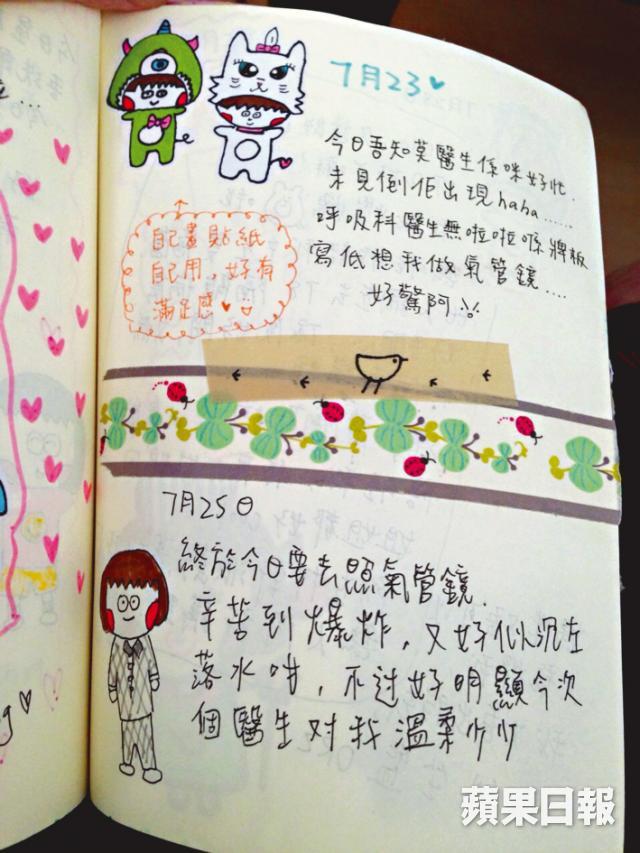 7月23
今日吾知莫醫生係咪好忙
未見倒佢出現haha......
呼吸科醫生無啦啦喺牌板
寫低想我做氣管鏡....
好驚阿
自己畫貼紙
自己用，好有
滿足感
7月25日
終於今日要去照氣管鏡.
辛苦到爆炸，又好似沉左
落水咁，不过好明顯今次
個醫生对我溫柔少少
蘋果日報